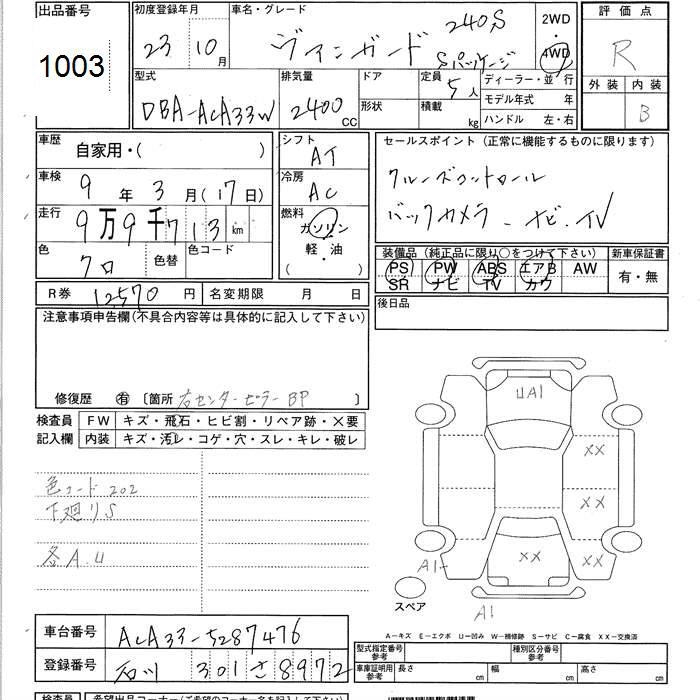 出品番号
1003
初度登録年月
23 10 月
車名・グレード
ヴァンガード 240S Sパッケージ
2WD
4WD
評価点
R
外装 内装
B
型式
DBA-ACA33W
排気量
2400 CC
ドア
形状
定員
5 人
積載
kg
ディーラー・並行
モデル年式 年
ハンドル 左・右
車歴
自家用・( )
車検
9 年 3 月(17日)
走行
9万9千713 km
色
クロ
色替
色コード
シフト
AT
冷房
AC
燃料
ガソリン
軽・油
( )
セールスポイント(正常に機能するものに限ります)
クルーズコントロール
バックカメラ - ナビ・TV
装備品(純正品に限り○をつけて下さい)
PS PW ABS エアB AW
SR ナビ TV カワ
新車保証書
有・無
R券 12570 円
名変期限 月 日
後日品
注意事項申告欄(不具合内容等は具体的に記入して下さい)
修復歴 有 〔箇所 右センターピラー BP 〕
検査員
記入欄
FW キズ・飛石・ヒビ割・リペア跡・X要
内装 キズ・汚レ・コゲ・穴・スレ・キレ・破レ
色コード 202
下廻りS
各A.U
UA1
XX
XX
XX
XX
A1
A1
スペア
A-キズ E-エクボ U-凹み W-補修跡 S-サビ C-腐食 XX-交換済
車台番号
ACA33-5287476
登録番号
石川 301 さ 8972
型式指定番号
参考
種別区分番号
参考
車庫証明用
参考
長さ cm
幅 cm
高さ cm
検査員
希望出品コーナー(ご希望のコーナー名を